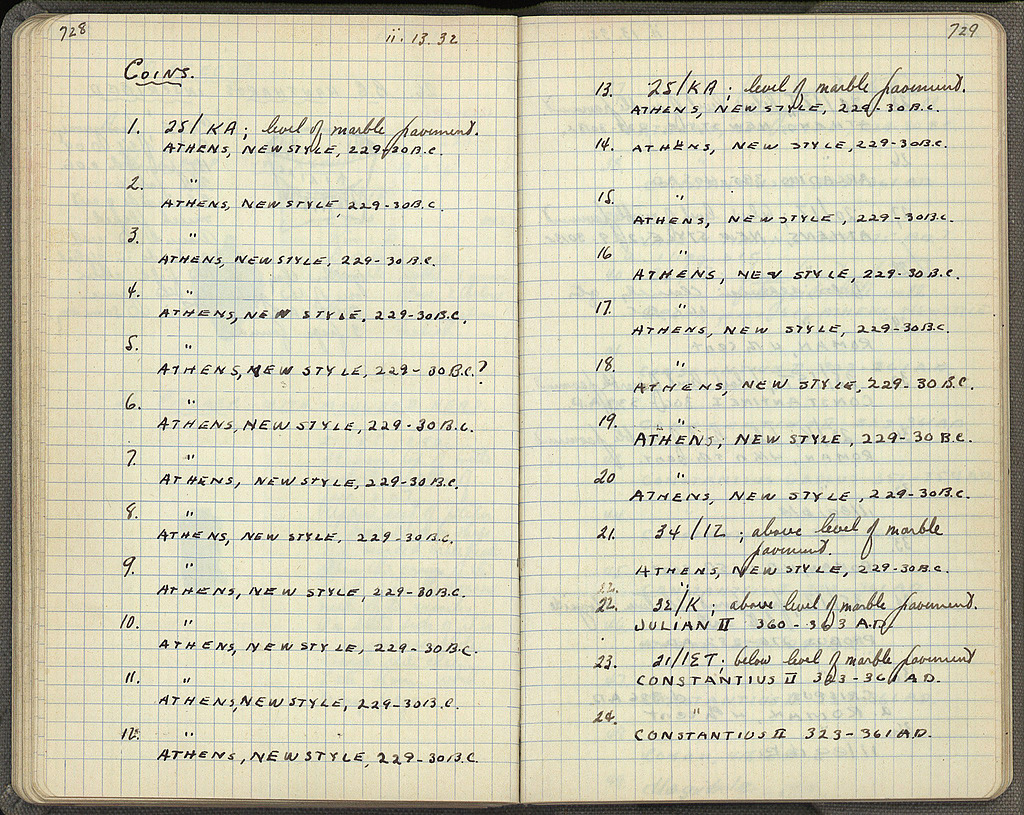 728
ii. 13. 32
COINS.
1. 25/KA; level of marble pavement.
ATHENS, NEW STYLE, 229-30 B.C.
2. "
ATHENS, NEW STYLE, 229-30 B.C.
3. "
ATHENS, NEW STYLE, 229-30 B.C.
4. "
ATHENS, NEW STYLE, 229-30 B.C.
5. "
ATHENS, NEW STYLE, 229-30 B.C.?
6. "
ATHENS, NEW STYLE, 229-30 B.C.
7. "
ATHENS, NEW STYLE, 229-30 B.C.
8. "
ATHENS, NEW STYLE, 229-30 B.C.
9. "
ATHENS, NEW STYLE, 229-30 B.C.
10. "
ATHENS, NEW STYLE, 229-30 B.C.
11. "
ATHENS, NEW STYLE, 229-30 B.C.
12. "
ATHENS, NEW STYLE, 229-30 B.C.
729
13. 25/KA; level of marble pavement.
ATHENS, NEW STYLE, 229-30 B.C.
14. ATHENS, NEW STYLE, 229-30 B.C.
15. "
ATHENS, NEW STYLE, 229-30 B.C.
16 "
ATHENS, NEW STYLE, 229-30 B.C.
17. "
ATHENS, NEW STYLE, 229-30 B.C.
18. "
ATHENS, NEW STYLE, 229-30 B.C.
19. "
ATHENS, NEW STYLE, 229-30 B.C.
20 "
ATHENS, NEW STYLE, 229-30 B.C.
21. 34/IZ; above level of marble
pavement.
ATHENS, NEW STYLE, 229-30 B.C.
22. "
22. 32/K; above level of marble pavement.
JULIAN II 360-363 A.D.
23. 21/IΣT; below level of marble pavement
CONSTANTIUS II 323-361 A.D.
24. "
CONSTANTIUS II 323-361 A.D.